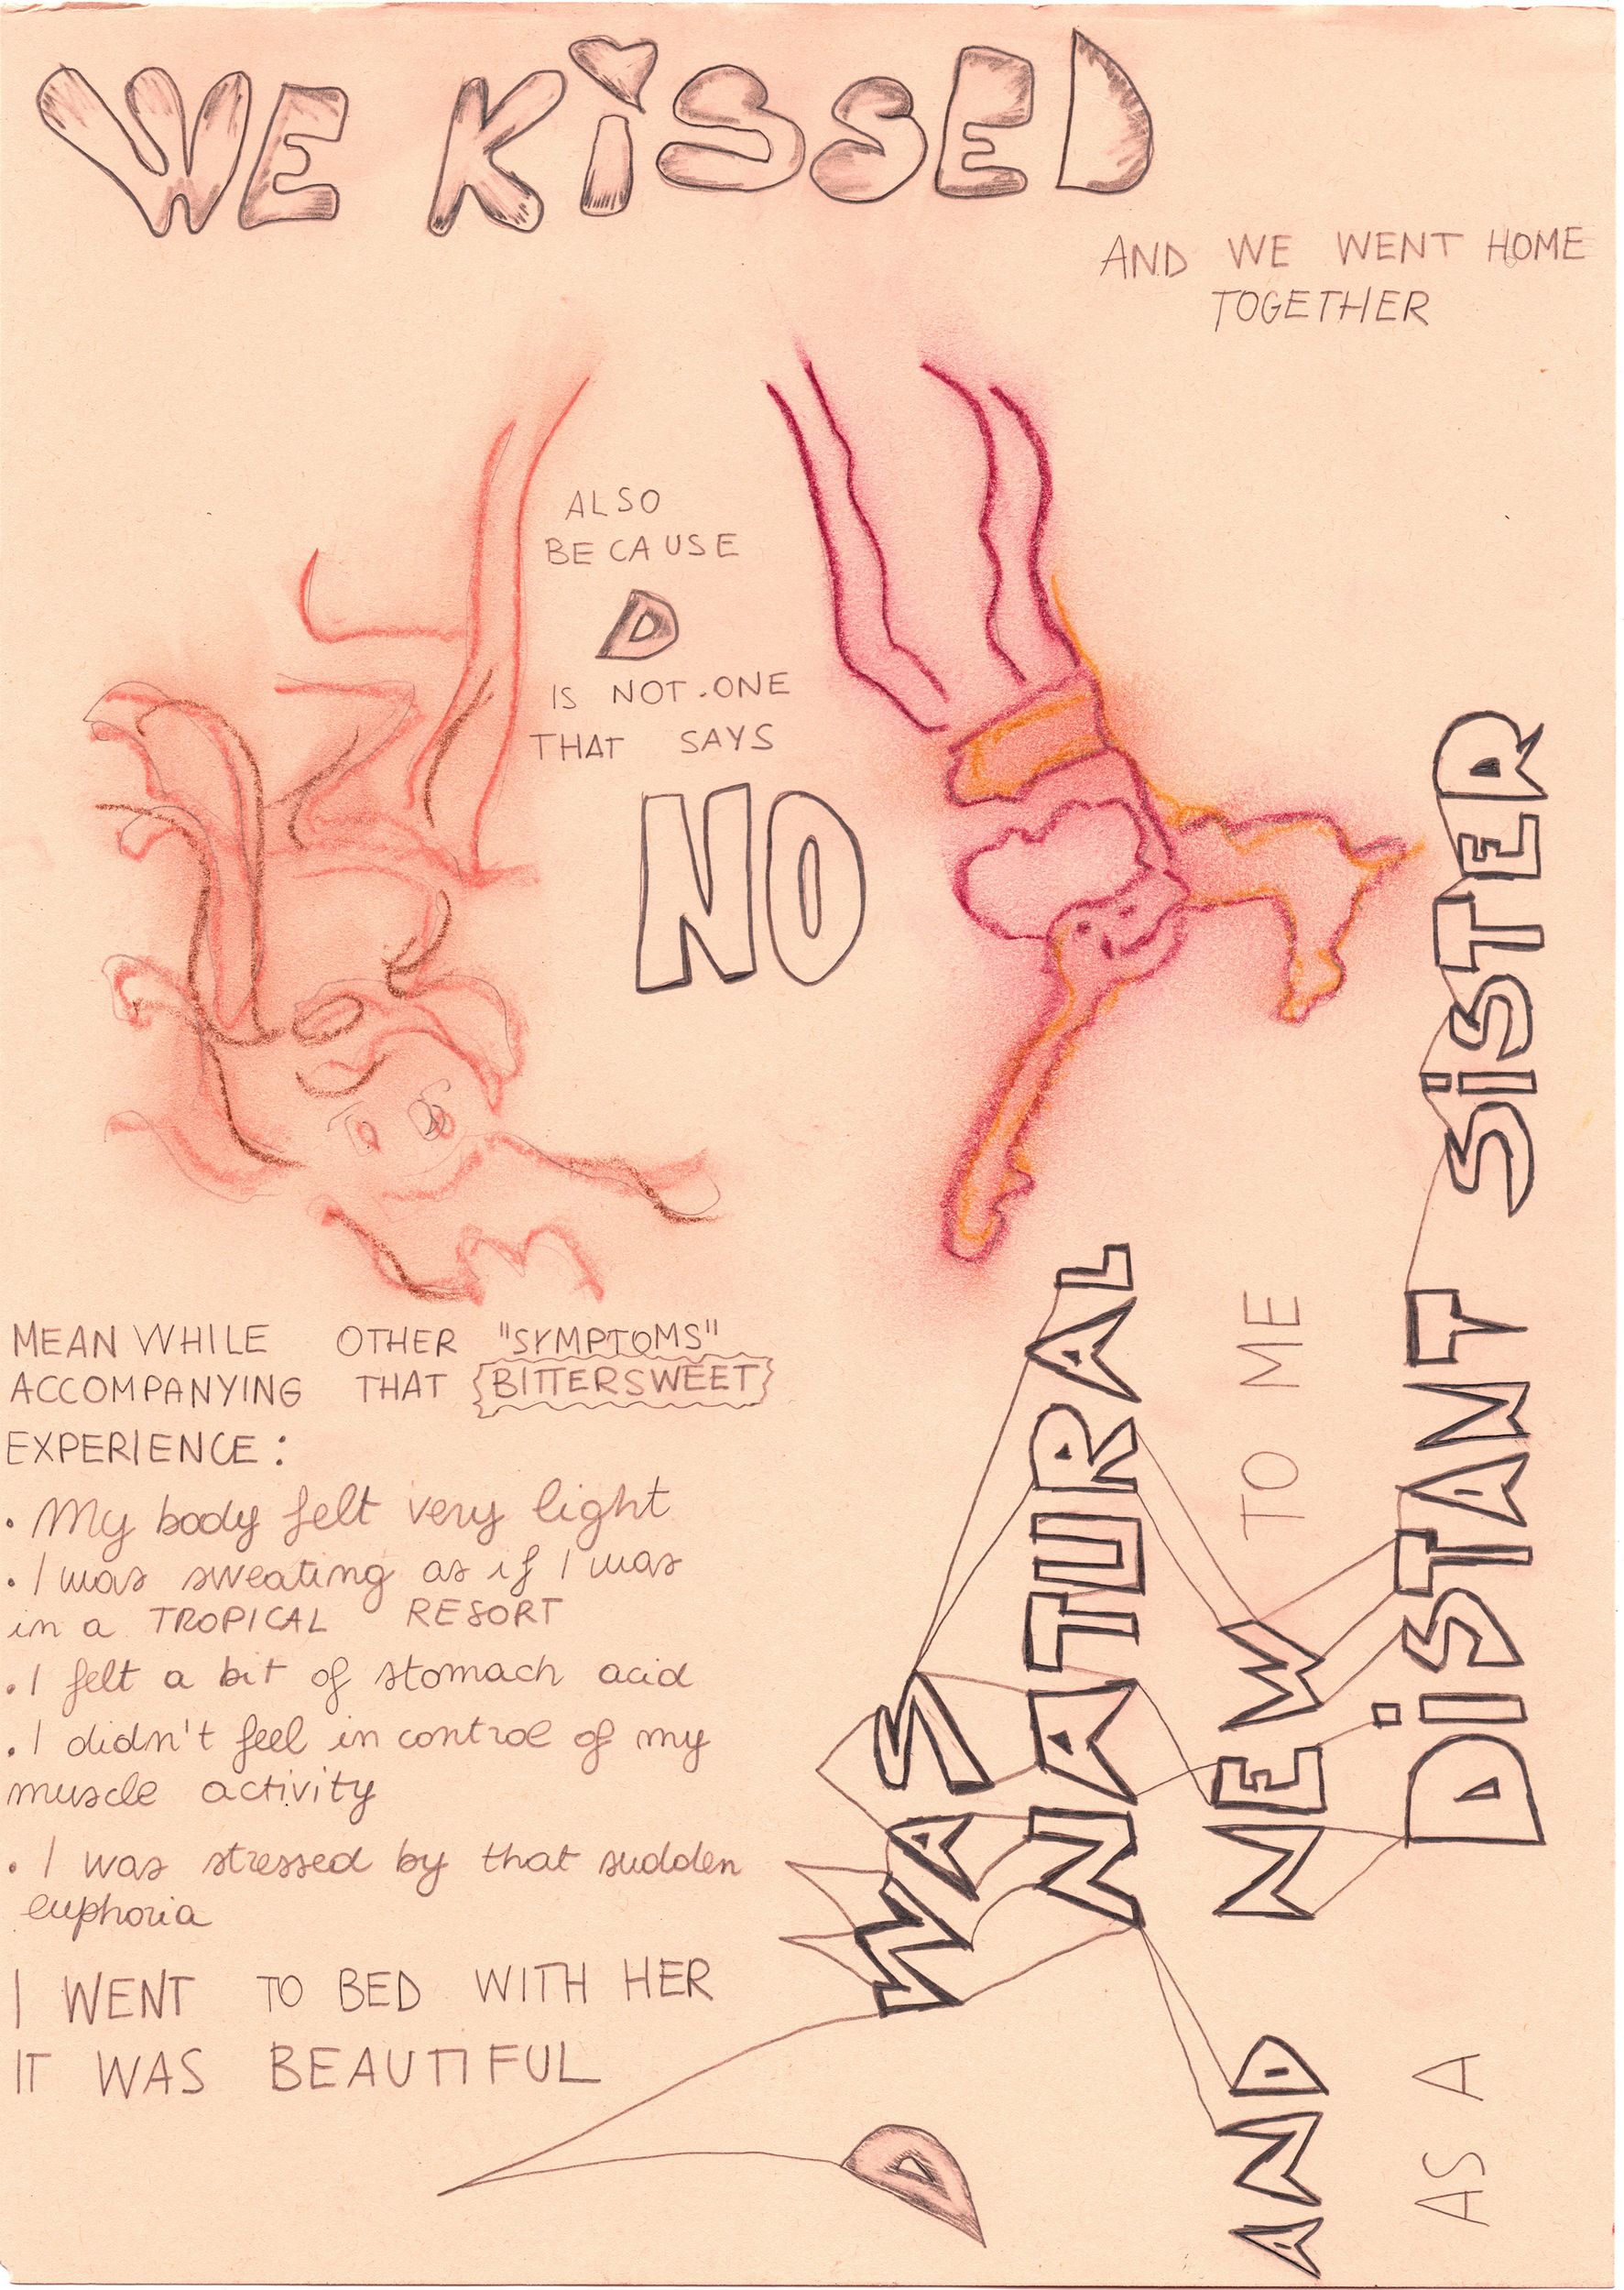 WE KiSSED
AND WE WENT HOME
TOGETHER
ALSO
BECAUSE
D
IS NOT.ONE
THAT SAYS
NO
MEANWHILE OTHER "SYMPTOMS"
ACCOMPANYING THAT {BITTERSWEET}
EXPERIENCE:
. My body felt very light
. I was sweating as if I was
in a TROPICAL RESORT
. I felt a bit of stomach acid
. I didn't feel in control of my
muscle activity
. I was stressed by that sudden
euphoria
I WENT TO BED WITH HER
IT WAS BEAUTIFUL
D WAS
NATURAL
AND NEW TO ME
AS A DiSTANT SiSTER